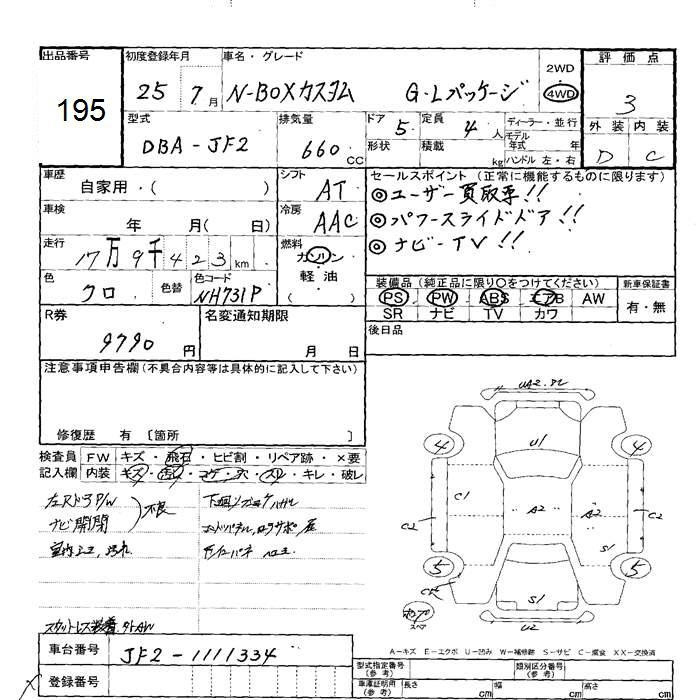 出品番号
195
初度登録年月
25 7月
車名・グレード
N-BOXカスタム G・Lパッケージ
2WD
4WD
評価点
3
外装 内装
D C
型式
DBA-JF2
排気量
660 CC
ドア 5
形状
定員 4人
積載 kg
ディーラー・並行
モデル
年式 年
ハンドル 左・右
車歴
自家用・( )
シフト
AT
車検
年 月( 日)
冷房
AAC
走行
17万9千423km
燃料
ガソリン
軽油
( )
色
クロ
色替
色コード
NH731P
セールスポイント (正常に機能するものに限ります)
◎ユーザー買取車!!
◎パワースライドドア!!
◎ナビーTV!!
装備品(純正品に限り○をつけてください)
PS PW ABS エアB AW
SR ナビ TV カワ
新車保証書
有・無
後日品
R券
9790円
名変通知期限
月 日
注意事項申告欄(不具合内容等は具体的に記入して下さい)
修復歴 有 〔箇所 〕
検査員
記入欄
FW キズ・飛石・ヒビ割・リペア跡・×要
内装 キズ・汚レ・コゲ・穴・スリ・キレ・破レ
左Rドア P/W
ナビ開閉
不良
室内キズ、汚れ
UA2
4 4
U1
C1
C2 A2 A2 C2
S1
5 5
S1
U2
スペア
A-キズ E-エクボ U-凹み W-補修跡 S-サビ C-腐食 XX-交換済
車台番号
JF2-1111334
登録番号
型式指定番号
(参考)
類別区分番号
(参考)
車庫証明用
(参考)
長さ cm 幅 cm 高さ cm